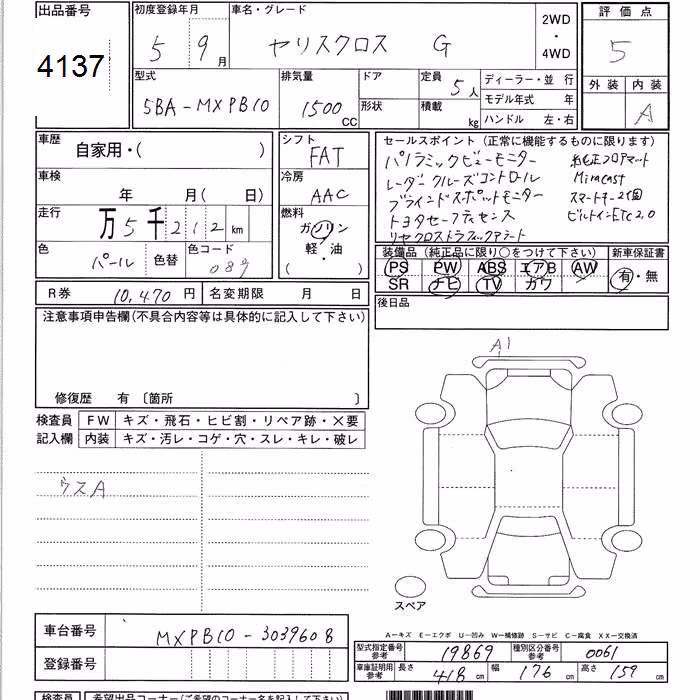 出品番号 初度登録年月 車名・グレード 2WD・4WD 評価点
4137 5 9月 ヤリスクロス G 5
型式 排気量 ドア 定員 5人 ディーラー・並 行 外装 内装
5BA-MXPB10 1500CC 形状 積載 kg モデル年式 年 A
ハンドル 左・右
車歴 自家用・( ) シフト FAT セールスポイント (正常に機能するものに限ります)
パノラミックビューモニター 純正フロアマット
車検 年 月( 日) 冷房 AAC レーダークルーズコントロール Miracast
ブラインドスポットモニター スマートキー2個
走行 万5千212km 燃料 ガソリン 軽・油 ( ) トヨタセーフティセンス ビルトインETC2.0
リヤクロストラフィックアラート
色 パール 色替 色コード 089 装備品 (純正品に限り○をつけて下さい) 新車保証書
PS PW ABS エアB AW 有・無
R券 10,470円 名変期限 月 日 SR ナビ TV カワ
注意事項申告欄(不具合内容等は具体的に記入して下さい) 後日品
A1
修復歴 有 〔箇所 〕
検査員 FW キズ・飛石・ヒビ割・リペア跡・×要
記入欄 内装 キズ・汚レ・コゲ・穴・スレ・キレ・破レ
ウスA
スペア
A―キズ E―エクボ U―凹み W―補修跡 S―サビ C―腐食 XX―交換済
車台番号 MXPB10-3039608 型式指定番号 参考 19869 種別区分番号 参考 0061
登録番号 車庫証明用 参考 長さ 418cm 幅 176cm 高さ 159cm
検査員 希望出品コーナー(ご希望のコーナー名を記入して下さい)